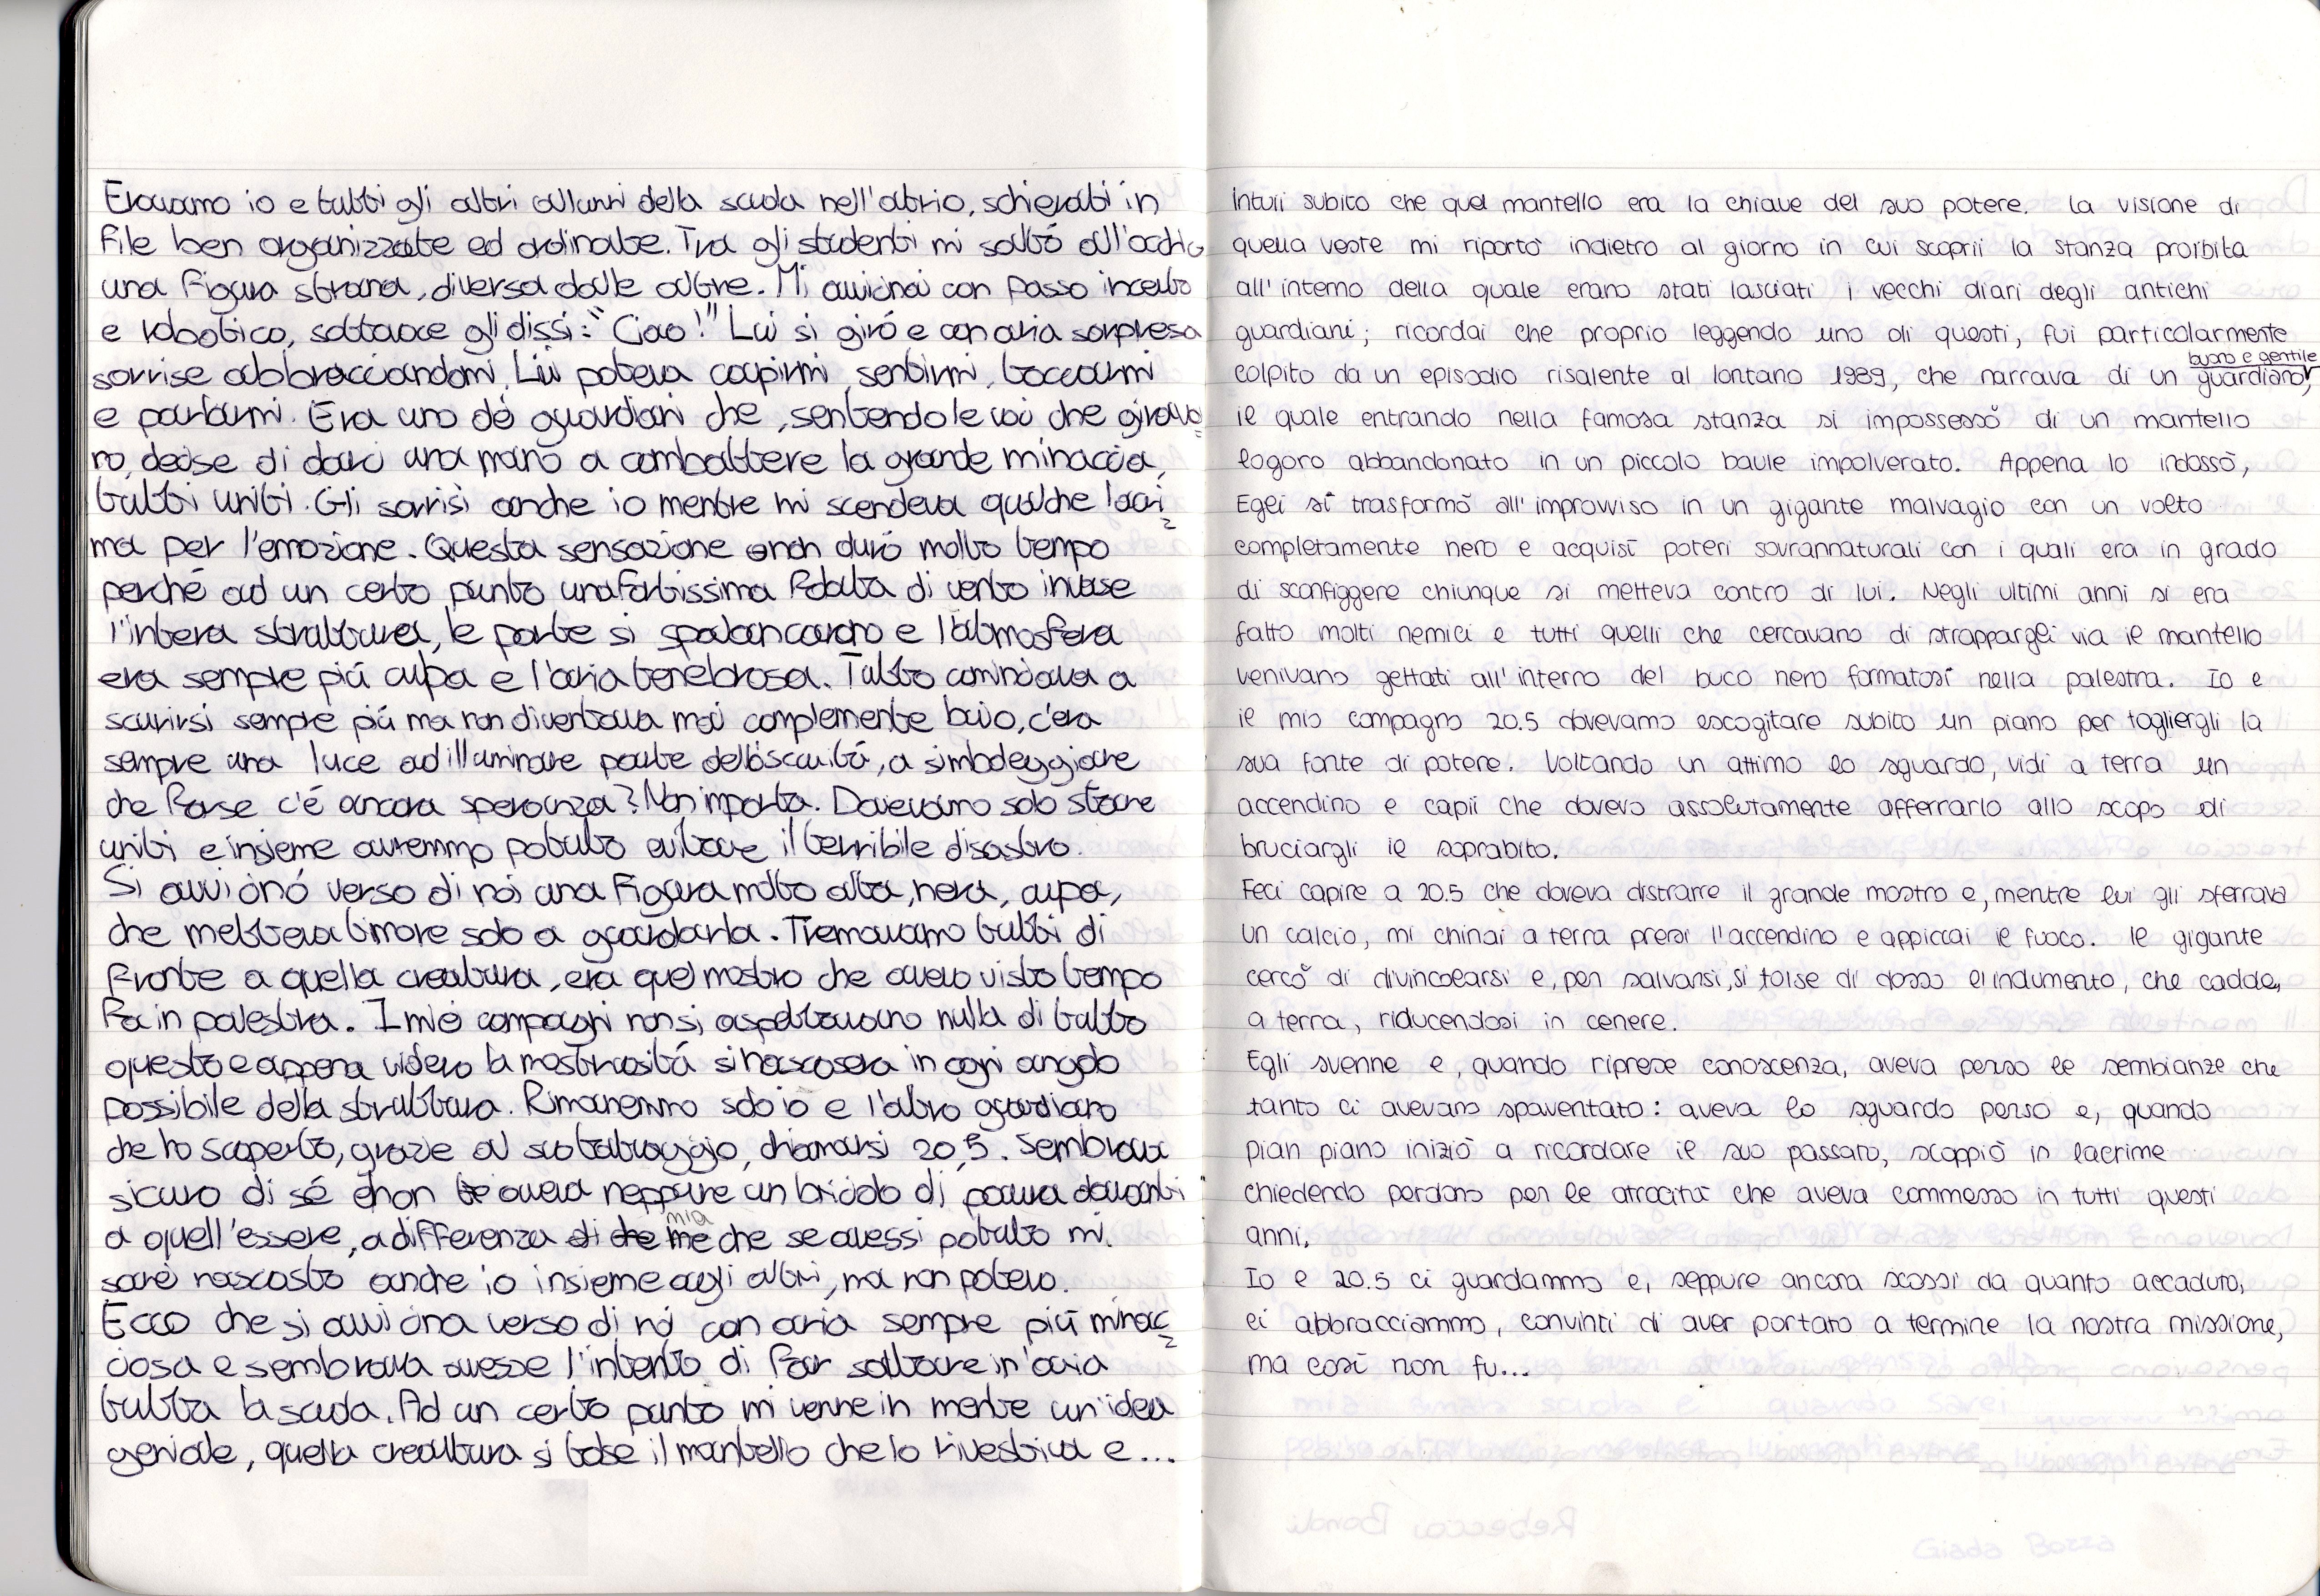 Eravamo io e tutti gli altri alunni della scuola nell'atrio, schierati in
file ben organizzate ed ordinate. Tra gli studenti mi saltò all'occhio
una figura strana, diversa dalle altre. Mi avvicinai con passo incerto
e robotico, sottovoce gli dissi: "Ciao!" Lui si girò e con aria sorpresa
sorrise abbracciandomi. Lui poteva capirmi, sentirmi, toccarmi
e parlarmi. Era uno dei guardiani che, sentendo le voci che girava
no, decise di darci una mano a combattere la grande minaccia,
tutti uniti. Gli sorrisi anche io mentre mi scendeva qualche lacri
ma per l'emozione. Questa sensazione non durò molto tempo
perché ad un certo punto una fortissima folata di vento invase
l'intera struttura, le porte si spalancarono e l'atmosfera
era sempre più cupa e l'aria tenebrosa. Tutto cominciava a
scurirsi sempre più ma non diventava mai complemente buio, c'era
sempre una luce ad illuminare parte dell'oscurità, a simboleggiare
che forse c'é ancora speranza? Non importa. Dovevamo solo stare
uniti e insieme avremmo potuto evitare il terribile disastro.
Si avvicinó verso di noi una figura molto alta, nera, cupa,
che metteva timore solo a guardarla. Tremavamo tutti di
fronte a quella creatura, era quel mostro che avevo visto tempo
fa in palestra. I miei compagni non si aspettavano nulla di tutto
questo e appena videro la mostruositá si nascosero in ogni angolo
possibile della struttura. Rimanemmo solo io e l'altro guardiano
che ho scoperto, grazie al suo tatuaggio, chiamarsi 20,5. Sembrava
sicuro di sé e non aveva neppure un briciolo di paura davanti
a quell'essere, a differenza di che me mia che se avessi potuto mi
sarei nascosto anche io insieme agli altri, ma non potevo.
Ecco che si avvicina verso di noi con aria sempre più minac
ciosa e sembrava avesse l'intento di far saltare in'aria
tutta la scuola. Ad un certo punto mi venne in mente un'idea
geniale, quella creatura si tolse il mantello che lo rivestiva e...
Intuii subito che quel mantello era la chiave del suo potere. La visione di
quella veste mi riportò indietro al giorno in cui scoprii la stanza proibita
all'interno della quale erano stati lasciati i vecchi diari degli antichi
guardiani; ricordai che proprio leggendo uno di questi, fui particolarmente
colpito da un episodio risalente al lontano 1989, che narrava di un guardiano buono e gentile,
il quale entrando nella famosa stanza si impossessò di un mantello
logoro abbandonato in un piccolo baule impolverato. Appena lo indossò,
Egli si trasformò all'improvviso in un gigante malvagio con un volto
completamente nero e acquisì poteri sovrannaturali con i quali era in grado
di sconfiggere chiunque si metteva contro di lui. Negli ultimi anni si era
fatto molti nemici e tutti quelli che cercavano di strappargli via il mantello
venivano gettati all'interno del buco nero formatosi nella palestra. Io e
il mio compagno 20.5 dovevamo escogitare subito un piano per togliergli la
sua fonte di potere. Voltando un attimo lo sguardo, vidi a terra un
accendino e capii che dovevo assolutamente afferrarlo allo scopo di
bruciargli il soprabito.
Feci capire a 20.5 che doveva distrarre il grande mostro e, mentre lui gli sferrava
un calcio, mi chinai a terra presi l'accendino e appiccai il fuoco. Il gigante
cercò di divincolarsi e, per salvarsi, si tolse di dosso l'indumento, che cadde,
a terra, riducendosi in cenere.
Egli svenne e, quando riprese conoscenza, aveva perso le sembianze che
tanto ci avevano spaventato: aveva lo sguardo perso e, quando
pian piano iniziò a ricordare il suo passato, scoppiò in lacrime
chiedendo perdono per le atrocità che aveva commesso in tutti questi
anni.
Io e 20.5 ci guardammo e, seppure ancora scossi da quanto accaduto,
ci abbracciammo, convinti di aver portato a termine la nostra missione,
ma così non fu...
Rebecca Bondi
Giada Bozza